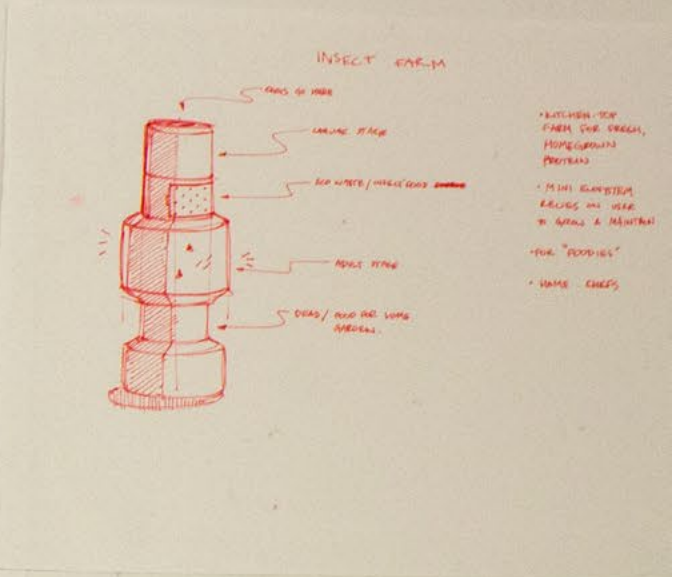 INSECT FARM
EGGS GO HERE
LARVAE STAGE
ECO WASTE / INSECT FOOD
ADULT STAGE
DEAD / FOOD FOR HOME
GARDEN.
• KITCHEN-TOP
FARM FOR FRESH,
HOMEGROWN
PROTEIN
• MINI ECOSYSTEM
RELIES ON USER
TO GROW & MAINTAIN
• FOR "FOODIES"
• HOME CHEFS